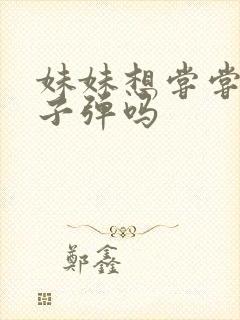 妹妹想尝尝
子弹吗
鄭鑫